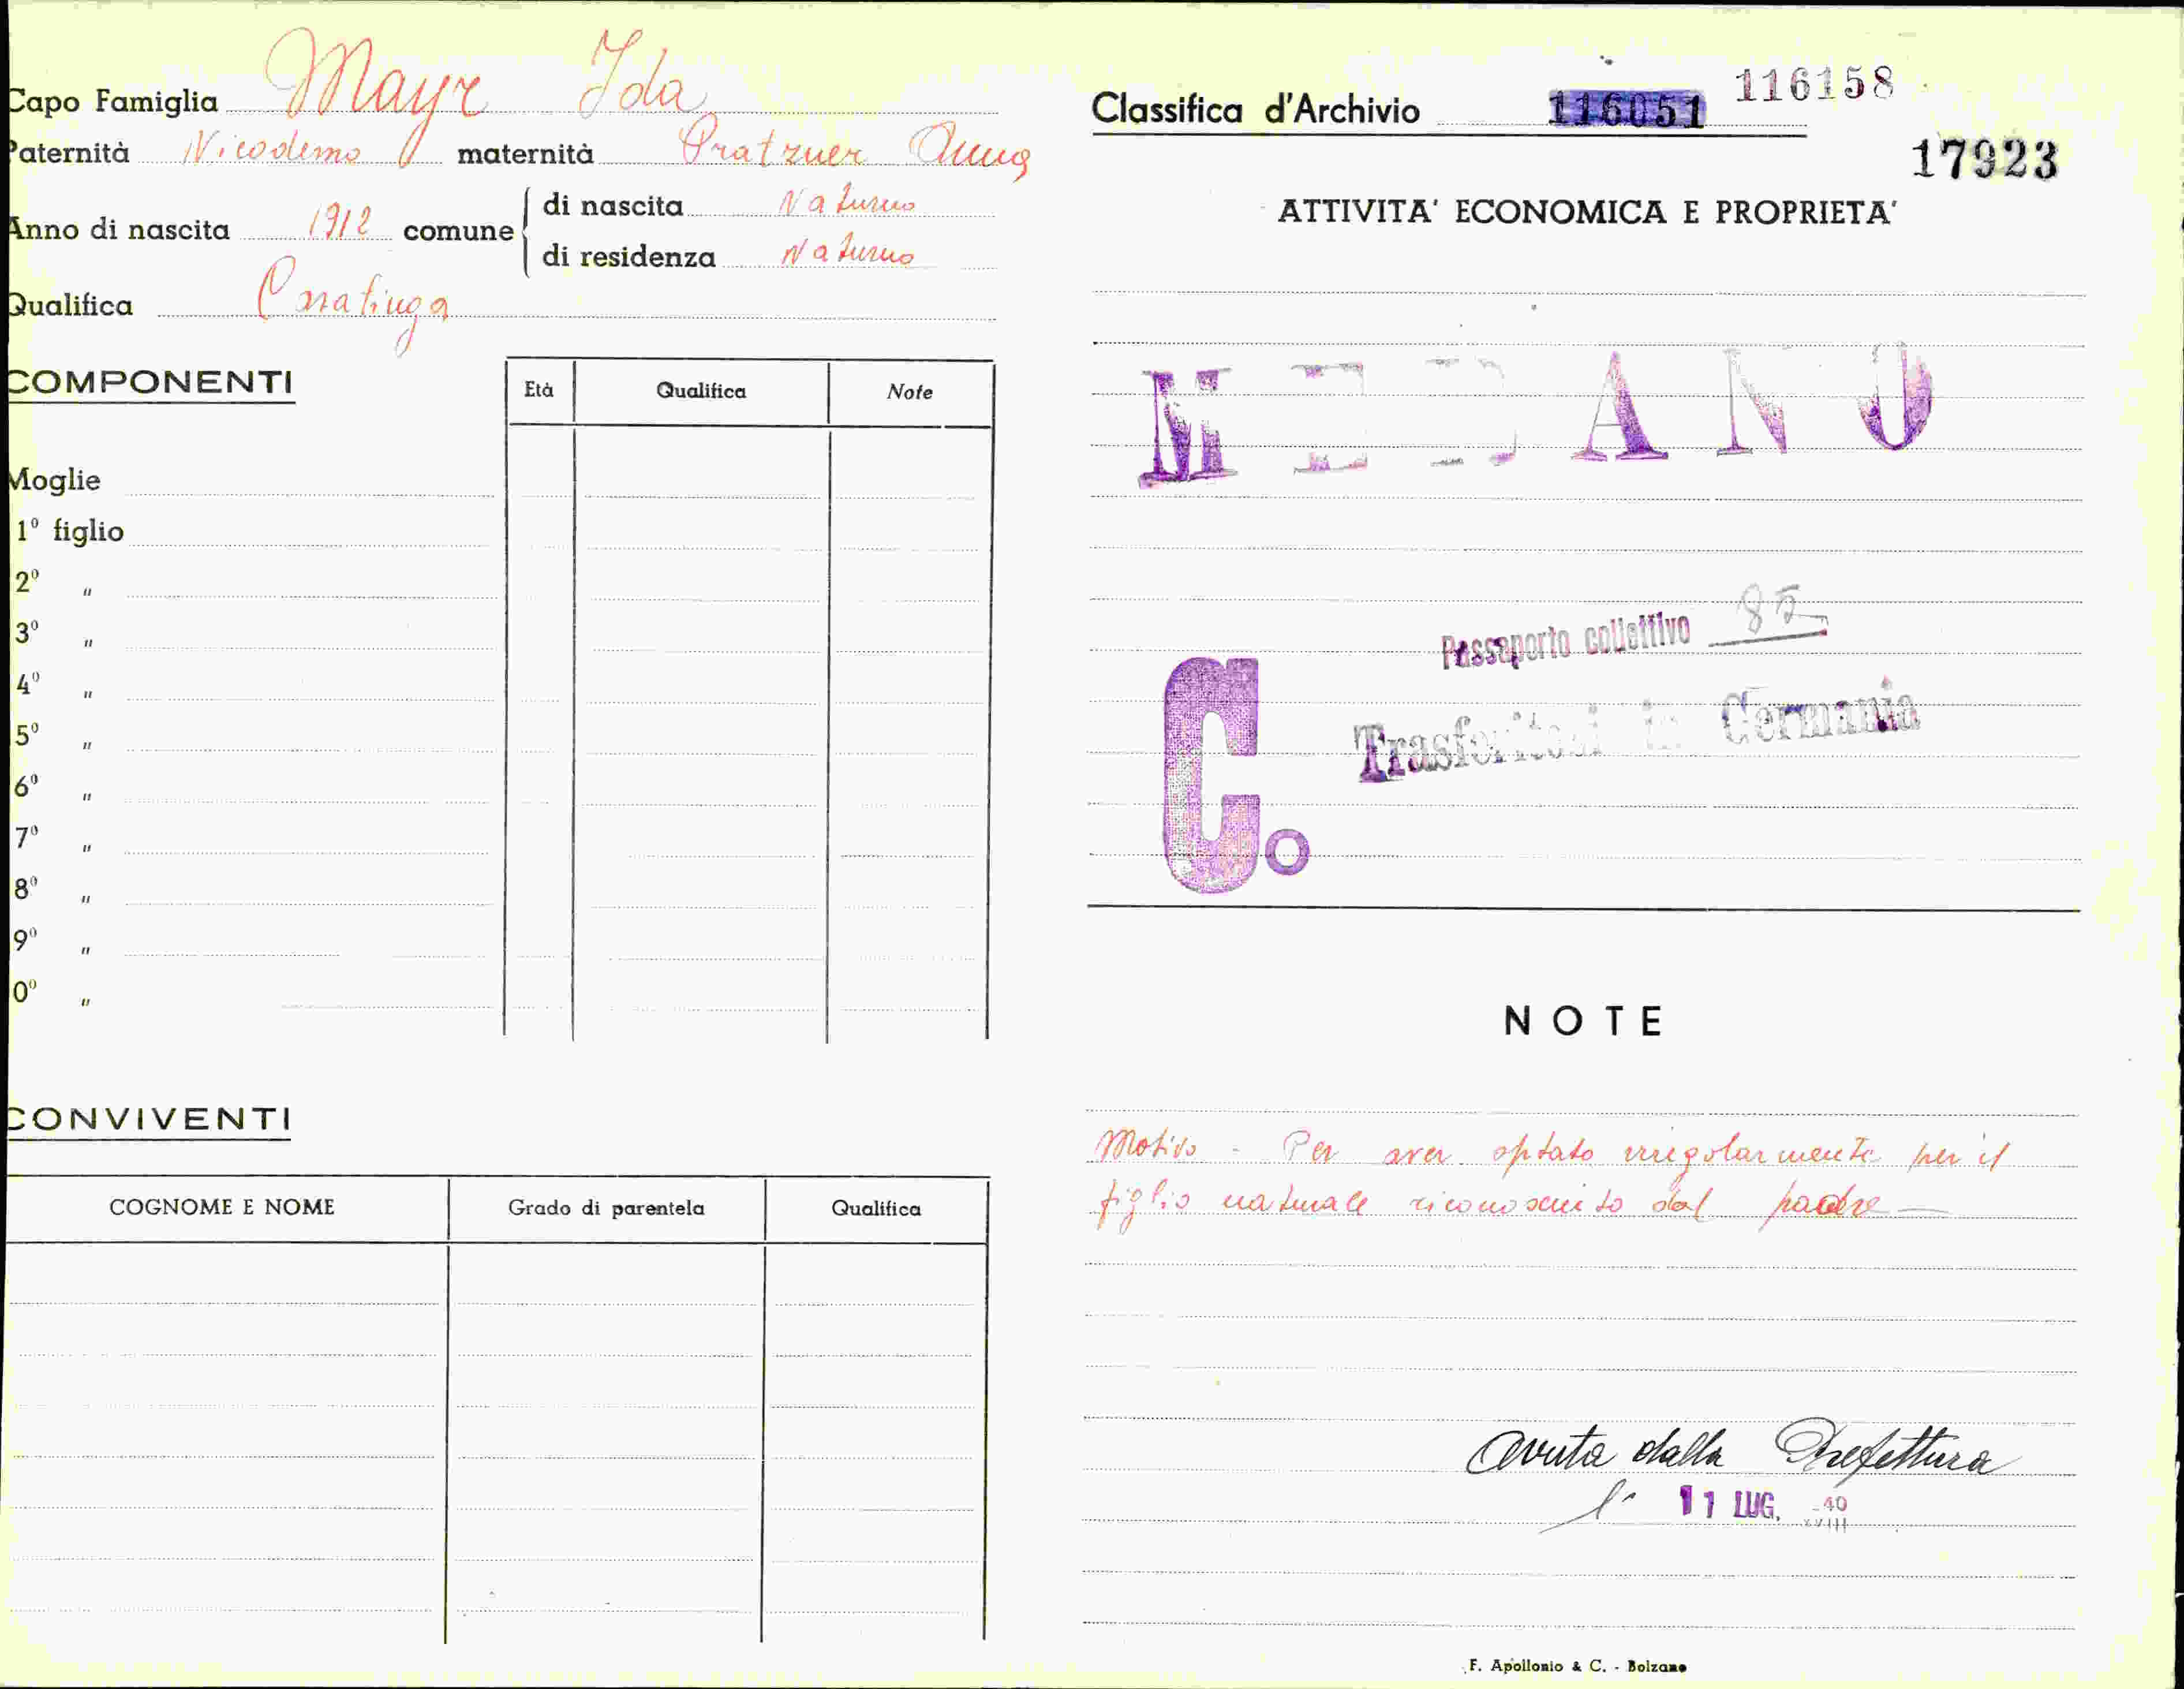 Capo Famiglia Mayr Ida
Paternità Nicodemo maternità Pratzner Anna
Anno di nascita 1912 comune di nascita Naturno
di residenza Naturno
Qualifica Casalinga
COMPONENTI
Età Qualifica Note
Moglie
1º figlio
2º "
3º "
4º "
5º "
6º "
7º "
8º "
9º "
0º "
CONVIVENTI
COGNOME E NOME Grado di parentela Qualifica
Classifica d'Archivio 116051 116158
17923
ATTIVITA' ECONOMICA E PROPRIETA'
MERANO
Passaporto collettivo 85
Trasferitosi in Germania
C.
NOTE
Motivo - Per aver optato irregolarmente per il
figlio naturale riconosciuto dal padre —
Avuta dalla Prefettura
l' 11 LUG. 40
XVIII
F. Apollonio & C. - Bolzano